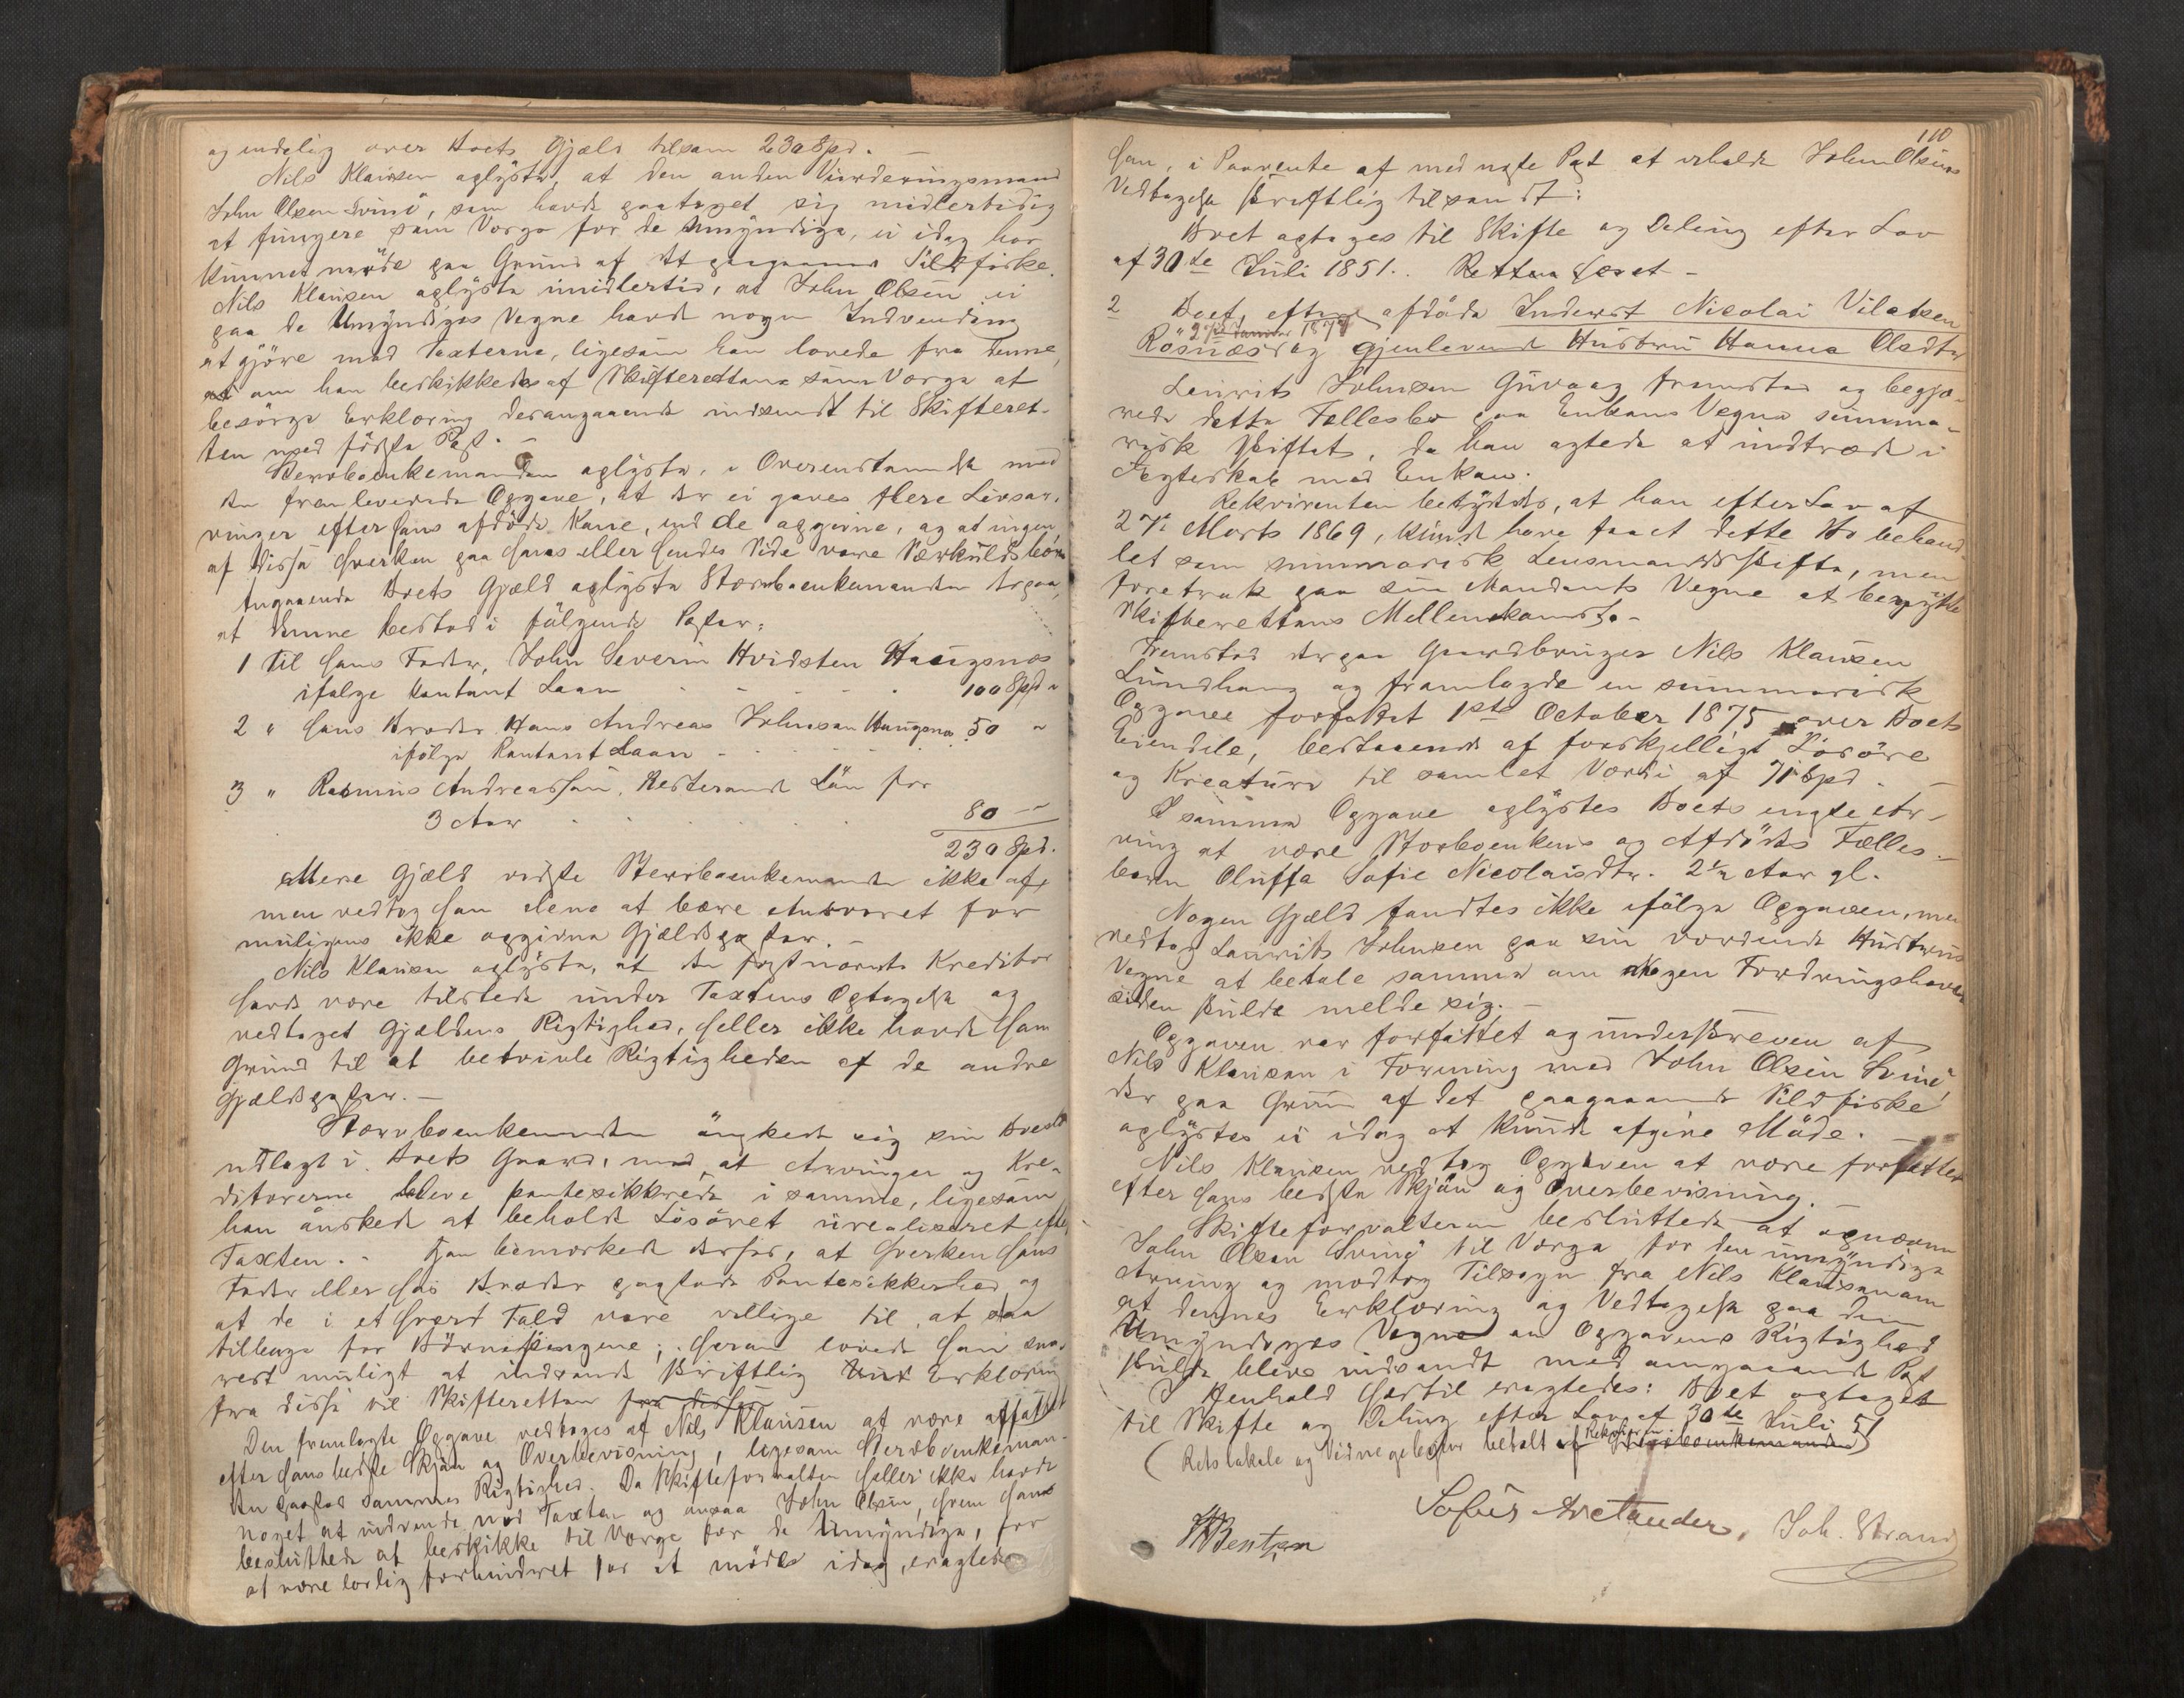 og endelig over Boets Gjæld tilsam 230 Spd. –
Nils Klausen oplyste, at den anden Vurderingsmand
John Olsen Svinö, som havde paataget sig midlertidig
at fungere som Værge for de Umyndige, ei idag har
kunnet møde paa Grund af det paagaaende Sildfiske.
Nils Klausen oplyste imidlertid, at John Olsen ei
paa de Umyndiges Vegne havde nogen Indvending
at gjöre mod Taxterne, ligesom han lovede fra denne,
at om han beskikkedes af Skifteretten som Værge at
besörge Erklæring desangaaende indsendt til Skifteret-
ten med förste Post. –
Stervboenkemanden oplyste, i Overensstemmelse med
den fremleverede Opgave, at der ei gaves flere Livsar-
vinger efter hans afdöde Kone, end de opgivne, og at ingen
af disse hverken paa hans eller hendes Side vare Særkuldsbörn
Angaaende Boets Gjæld oplyste Stervboenkemanden derpaa,
at denne bestod i fölgende Poster:
1 Til hans Fader, John Severin Hvidsten Haugsnes
ifølge kontant Laan - - - - 100 Spd "
2 " hans Broder Hans Andreas Johnsen Haugsnes 50 "
ifölge kontant Laan - - - -
3 " Rasmus Andreassen, Resterende Lön for
3 Aar - - - - 80 –
230 Spd.
Mere Gjæld vidste Stervboenkemanden ikke af,
men vedtog han alene at bære Ansvaret for
muligens ikke opgivne Gjældsposter. –
Nils Klausen oplyste, at den sidstnævnte Kreditor
havde været tilstede under Taxtens Optagelse og
vedtaget Gjældens Rigtighed, heller ikke havde han
Grund til at betvivle Rigtigheden af de andre
Gjældsposter. –
Stervboenkemanden önskede sig sin Boeslod
udlagt i Boets Gaard, mod, at Arvinger og Kre-
ditorerne bleve pantesikkrede i samme, ligesom
han önskede at beholde Lösöret urealiseret efter
Taxten. – Han bemærkede derhos, at hverken hans
Fader eller hans Broder paastode Pantesikkerhed, og
at de i et hvert Fald vare villige til, at staa
tilbage for Börnepengene; herom lovede han snar
rest muligt at indsende skriftlig Erklæring
fra disse til Skifteretten fra disse
Den fremlagte Opgave vedtoges af Nils Klausen at være affattet
efter hans bedste Skjön og Overbevisning, ligesom Stervboenkeman-
den paastod sammes Rigtighed. Da Skifteforvalteren heller ikke havde
noget at indvende mod Taxten og ansaa John Olsen, hvem han
besluttede at beskikke til Værge for de Umyndige, for
at være lovlig forhindret for at møde idag, eragtede
110
han, i Paavente af med neste Post at erholde John Olsens
Vedtagelse skriftlig tilsendt:
Boet optages til Skifte og Deling efter Lov
af 30te Juli 1851. Retten hævet –
2 Boet efter afdöde Inderst Nicolai Vilatsen
Rösnæs og gjenlevende Hustru Hanna Olsdtr
Laurits Johnsen Guvaag fremstod og begjæ-
rede dette Fællesbo paa Enkens Vegne summa-
risk skiftet, da han agtede at indtræde i
Ægteskab med Enken.
Rekvirenten betydedes, at han efter Lov af
27de Marts 1869, kunde have faaet dette Bo behand-
let som summarisk Lensmandsskifte, men
foretrak paa sin Mandants Vegne at benytte
Skifterettens Mellemkomst. –
Fremstod derpaa Gaardbruger Nils Klausen
Lundhaug og fremlagde en summarisk
Opgave forfattet 1ste October 1875 over Boets
Eiendele, bestaaende af forskjelligt Lösöre
og Kreature til samlet Værdi af 71 Spd. –
I samme Opgave oplystes Boets eneste Ar-
ving at være Stervboenkens og Afdödes Fælles-
barn Oluffa Sofie Nicolaisdtr. 2½ Aar gl.
Nogen Gjæld fandtes ikke ifölge Opgaven, men
vedtog Laurits Johnsen paa sin vordende Hustrus
Vegne at betale samme om nogen Fordringshaver
siden skulde melde sig. –
Opgaven var forfattet og underskreven af
Nils Klausen i Forening med John Olsen Svinö,
der paa Grund af det paagaaende Sildfiske
oplystes ei idag at kunde afgive Möde. –
Nils Klausen vedtog Opgaven at være forfattet
efter hans bedste Skjön og Overbevisning.
Skifteforvalteren besluttede at opnævne
John Olsen Svinö til Værge for den umyndige
Arving og modtog Tilsagn fra Nils Klausen om
at dennes Erklæring og Vedtagelse paa den
Umyndiges Vegne om Opgavens Rigtighed
skulde blive indsendt med omgaaende Post
I Henhold hertil eragtedes: Boet optaget
til Skifte og Deling efter Lov af 30te Juli 51
(Retslokale og Vidnegebyhr betalt af Rekvirenten Stervboenkemanden)
Sofus Arctander. Joh. Strand
Bentzen